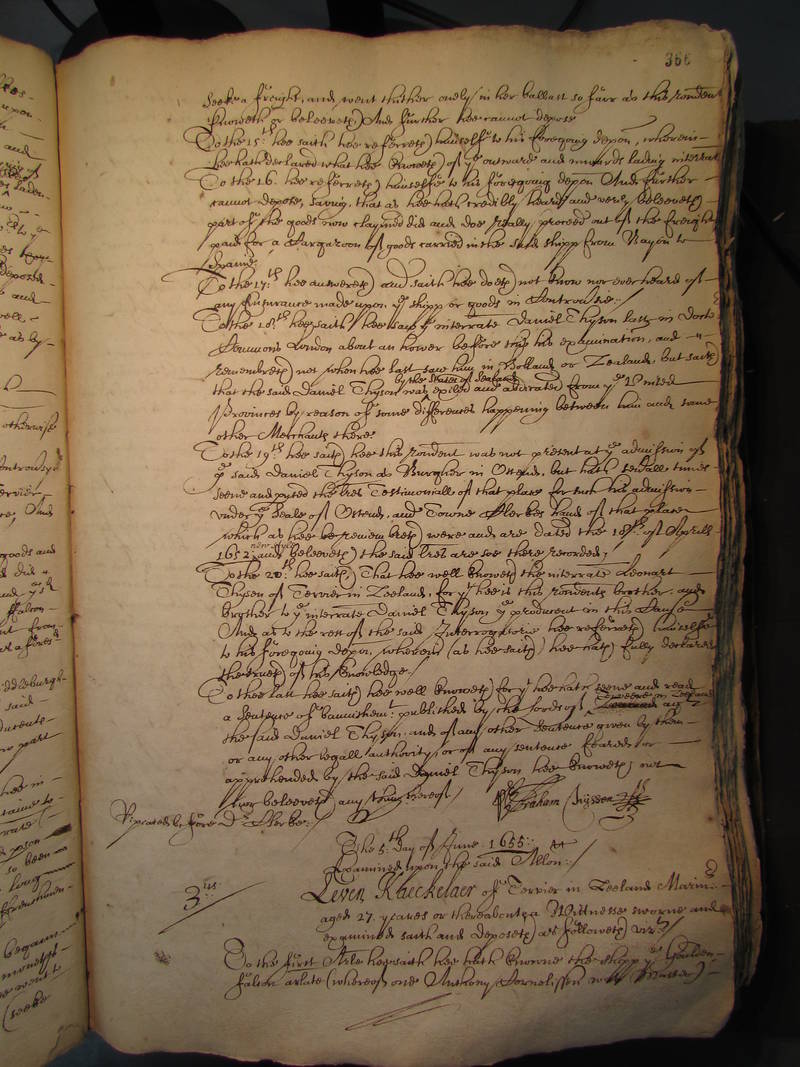 366
seeke a freight, and went thither onely in her ballast so farr as this rendent
knoweth or beleeveth) And further hee cannot depose
To the 15:th hee saith hee referreth) himselfe to his foregoing depon, wherein
hee hath declared what hee knoweth) of ye outward and inwards lading interrate
To the 16. hee referreth) himselfe to his foregoing depon And further
cannot depose, saving that as hee hath credibly heard and verily beleeveth)
part of the goods now claymed did and doe really proceed out of the freight
paid for a Cargazoon of goods carried in the said shipp from Nayon to
To the 17:th hee answereth) and saith hee doeth) not know nor ever heard of
any Insurance made upon ye shipp or goods in Controversie./
To the 18:th hee saith hee saw ye interrate Daniel Thyson last in Doctors
Commons London about an hower before this his examination, and
remembreth) not when hee last saw him in Holland or Zealand, but saith
by the States of Zealand
that the said Daniel Thyson was exiled and from ye United
Provinces by reason of some differences happening between him and some
other Merchants there.
To the 19:th hee saith) hee this rendent was not present at ye admission of
ye said Daniel Thyson as Burgher in Ostend, but hath severall times
seene and the lres Testimoniall of that place for such his admission
under ye Seale of Ostend, and Towne Clerkes hand of that place
which as hee remembreth) were and are dated the 18th of Aprill
new stile
1652, and beleeveth) the said lres are soe there recorded,
To the 20:th hee saith) That hee well knoweth) the interrate Leonart
Thysen of Tervier in Zeeland, for yt hee is this rendents brother, and
brother to ye interrate Daniel Thyson ye producent in this Cause
And as to the rest of the said Interrogatorie hee referreth) himselfe
to his foregoing depon, wherein (as hee saith) hee hath) fully declared
the trueth) of his knowledge./
To the last hee saith) hee well knoweth) for yt hee hath seene and read
a Sentence of banishmt published by the lords of Tweere in Zeeland agt
the said Daniel Thyson, and of any other Sentence given by them
or any other legall authority, or of any sentence feared or
apprehended by the said Daniel Thyson hee knoweth) not
nor beleeveth) any thing thereof./
Abraham Thyssen
Repeated before Dr Clerke./
The 5:th Day of June 1655:
Examined upon the said Allon:/
3us
Leven Kaeckelaer of Tervier in Zeeland Marinr
aged 27 yeares or thereabouts a Wittnesse sworne and
examined saith and deposeth) as followeth) vizt/
To the first Arle hee saith hee hath knowne the shipp ye Goulden
falcon arlate (whereof one Anthony Cornelissen was Master)